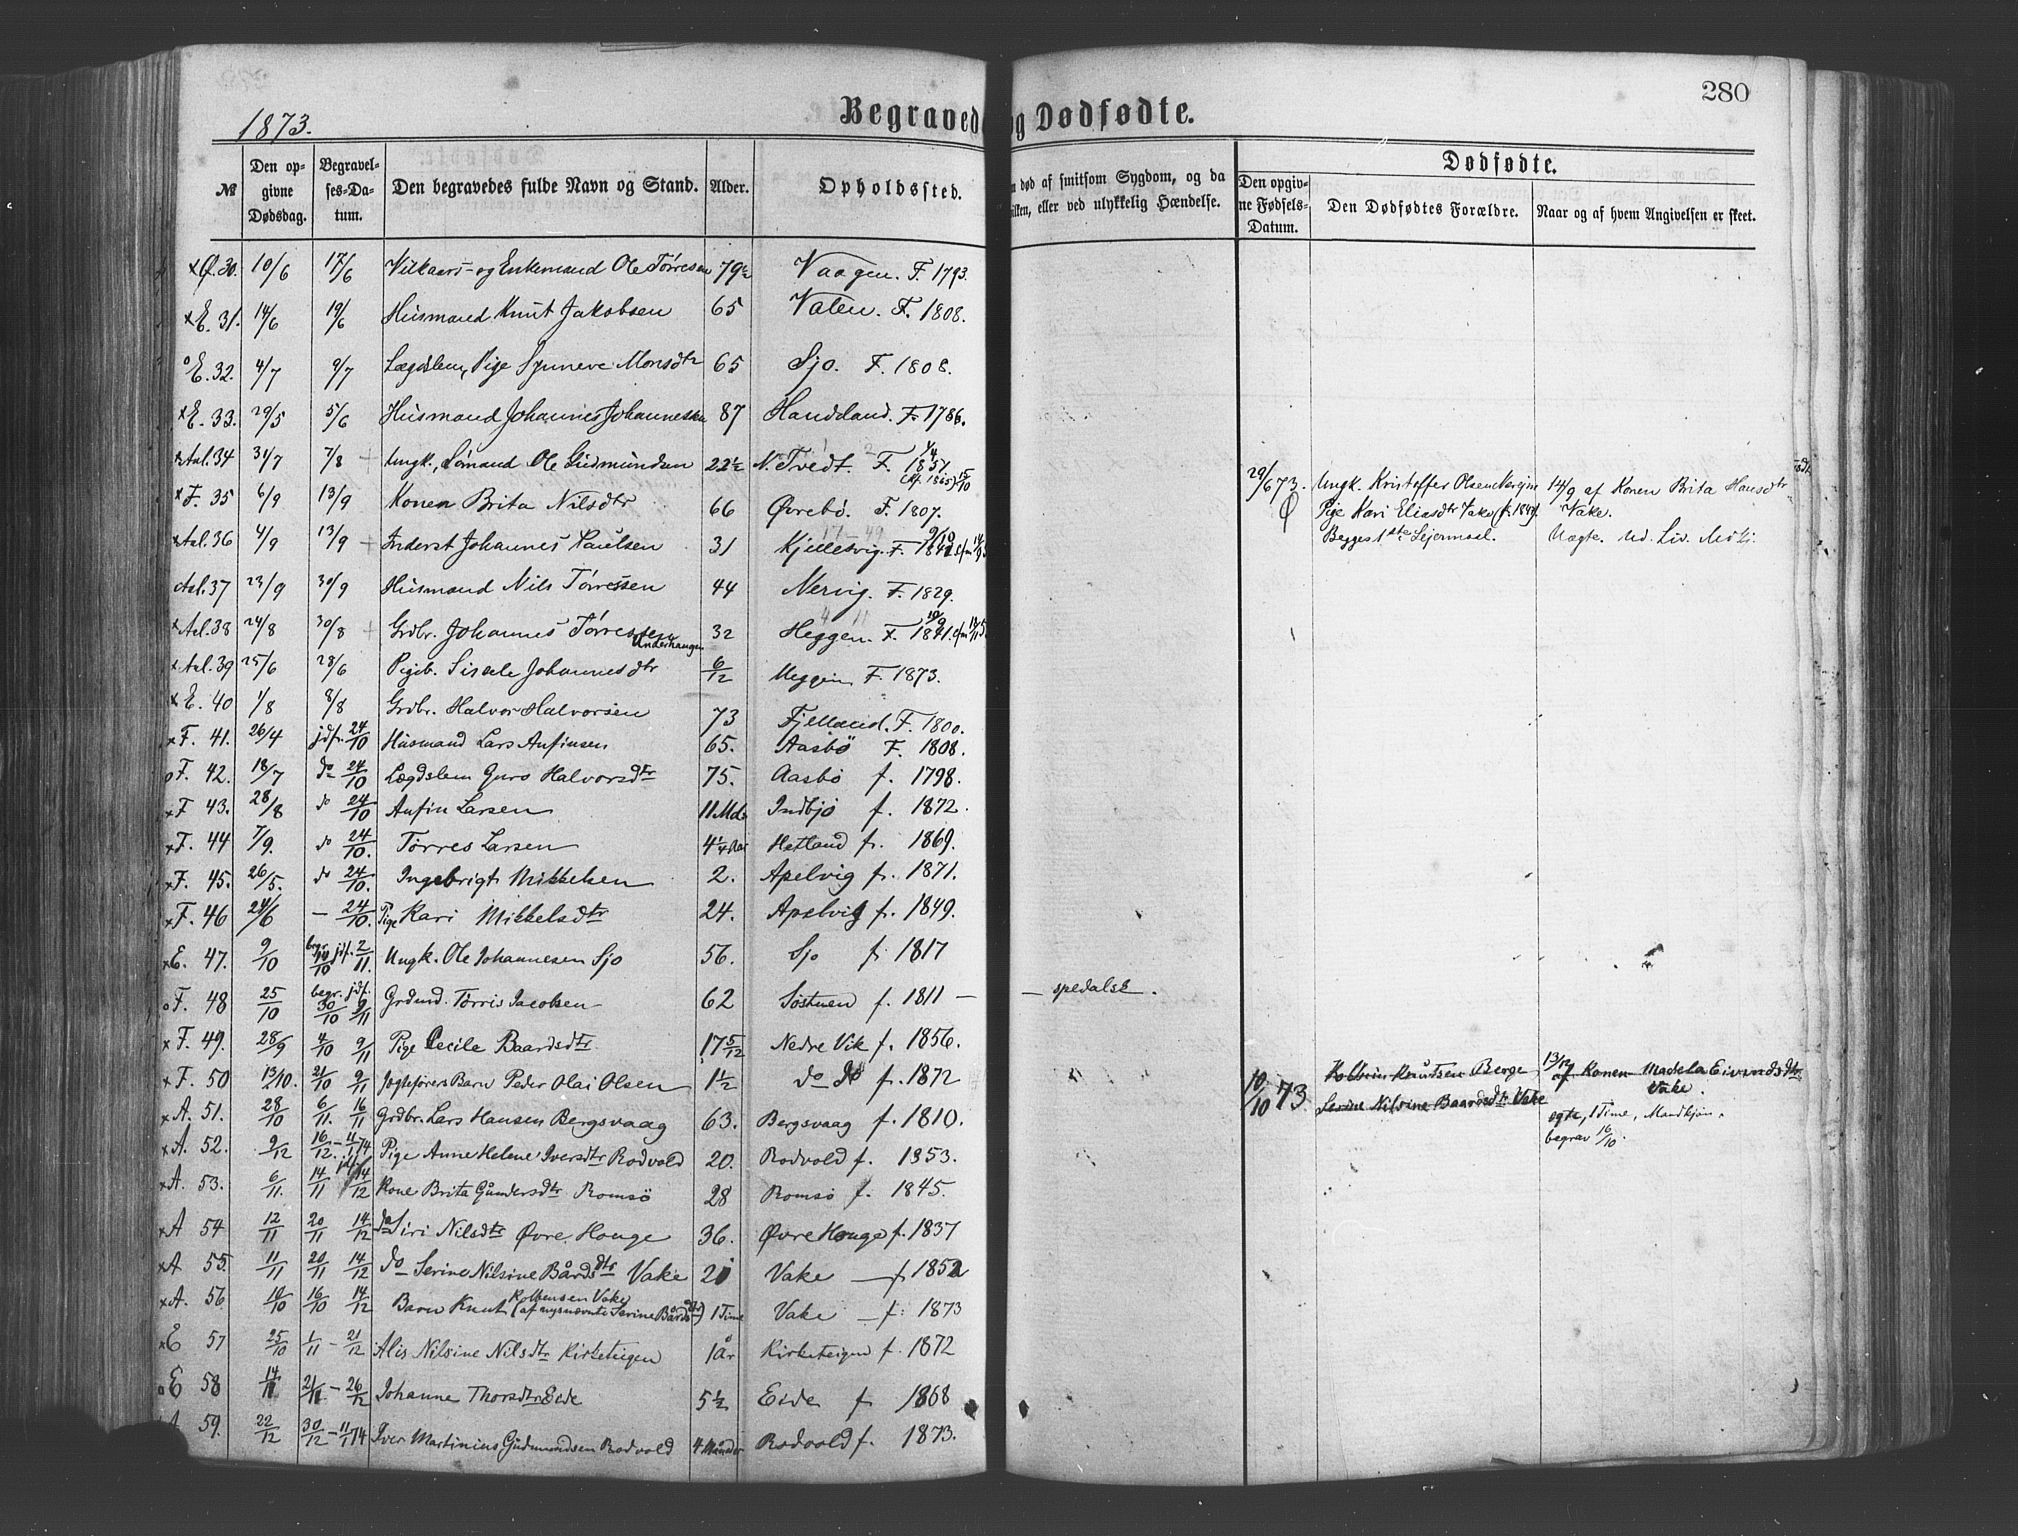 280
1873.
Begravede og Dødfødte.
№
Den opgivne Dødsdag.
Begravelses-Datum.
Den begravedes fulde Navn og Stand.
Alder.
Opholdssted.
død af smitsom Sygdom, og da
hvilken, eller ved ulykkelig Hændelse.
Dødfødte.
Den opgivne Fødsels-Datum.
Den Dødfødtes Forældre.
Naar og af hvem Angivelsen er skeet.
×Ø. 30. 10/6 17/6 Vilkaars- og Enkemand Ole Tørresen 79½ Vaagen. F. 1793.
×E. 31. 14/6 19/6 Husmand Knut Jakobsen 65 Valen. F. 1808.
°E. 32. 4/7 9/7 Lægdslem, Pige Synneve Monsdtr 65 Sjo. F. 1808.
×E. 33. 29/5 5/6 Husmand Johannes Johannessen 87 Handeland. F. 1786.
×Aal. 34 31/7 7/8 Ungk., Sømand Ole Gudmundsen 22½ N. Tvedt. F. 1/4 1851 (Kf. 1865) 15/10
×F. 35 6/9 13/9 Konen Brita Nilsdtr 66 Øvrebø. F. 1807.
×Aal. 36 4/9 13/9 Inderst Johannes Paulsen 31 Kjillesvig. F. 9/10 1842
Aal. 37 23/9 30/9 Husmand Nils Tørressen 44 Nervig. F. 1829.
×Aal. 38 24/8 30/8 Grdbr. Johannes Tørressen Underhaugen 32 Heggen. F. 10/9 1841.
×Aal. 39 25/6 28/6 Pigeb. Sissele Johannesdtr 6/12 Heggen F. 1873.
×E. 40 1/8 8/8 Grdbr. Halvor Halvorsen 73 Fjelland. F. 1800.
×F. 41. 26/4 jdf. 24/10 Husmand Lars Anfinsen 65. Aasbö F. 1808.
oF. 42. 18/7 do 24/10 Lægdslem Guro Halvorsdtr 75. Aasbö f. 1798.
×F 43. 28/8 do 24/10 Anfin Larsen 11 Mdr Indbjo f. 1872.
×F. 44 7/9. do 24/10. Tørres Larsen 4¼ Aar Hetland f. 1869.
×F. 45. 26/5. do 24/10. Ingebrigt Mikkelsen 2. Apelvig f. 1871.
×F. 46 24/6 — 24/10. Pige Kari Mikkelsdtr 24. Apelvig f. 1849.
×E. 47. 9/10 begr. 14/10 jdf. 2/11. Ungk. Ole Johannesen Sjo 56. Sjo f 1817
oF. 48 25/10 begr. 30/10 jdf. 9/11 Grdmd. Tørris Jacobsen 62 Søstuen f. 1811 — — spedalsk.
×F. 49. 28/9 4/10 9/11 Pige Cecile Baardsdtr 17 5/12 Nedre Vik f. 1856.
×F. 50 13/10. 21/10 9/11 Jogteførers Barn Peder Olai Olsen 1½ do do f. 1872
×A. 51. 28/10 6/11. 16/11 Grdbr. Lars Hansen Bergsvaag 63. Bergsvaag f. 1810.
×A. 52. 9/12 16/12 - 11/1 74 Pige Anne Helene Iversdtr Rodvold 20. Rodvold f. 1853.
×A. 53. 6/11. 14/11 jdf. 14/12 Kone Brita Gundersdtr Romsö 28 Romsö f. 1845.
×A 54 12/11 20/11 14/12 do Siri Nilsdtr Øvre Houge 36. Øvre Houge f. 1837
×A 55. 11/11 20/11 14/12 do Serine Nilsine Bårdsdtr Vake 21 Vake — f 1852
×A. 56 10/10 16/10 14/12 Barn Knut Kolbensen Vake (af nysnævnte Serine Bårdsdtr) 1 Time Vake — f: 1873
×E 57 25/10 1/11 - 21/12 Alis Nilsine Nilsdtr Kirketeigen 1 år Kirketeigen f. 1872
oE 58 14/11 21/11 - 26/12 Johanne Thorsdtr Eide 5½ Eide f 1868
A 59. 22/12 30/12 - 11/1 74 Iver Martinius Gudmundsen Rodvold 4 Måneder Rodvold f. 1873.
29/6 73. Ungk. Kristoffer Olsen 14/9 af Konen Brita Hansdtr
Ø Pige Kari Eliasdtr Vake Vake.
Begges 1ste Lejermaal. Uægte.
10/10 73 Kolbein Knutsen Berge 13/12 af Konen Madela Eivindsdtr
Serine Nilsine Baardsdtr Vake Vake.
egte, 1 Time, Mandkjøn.
begrav 16/10.